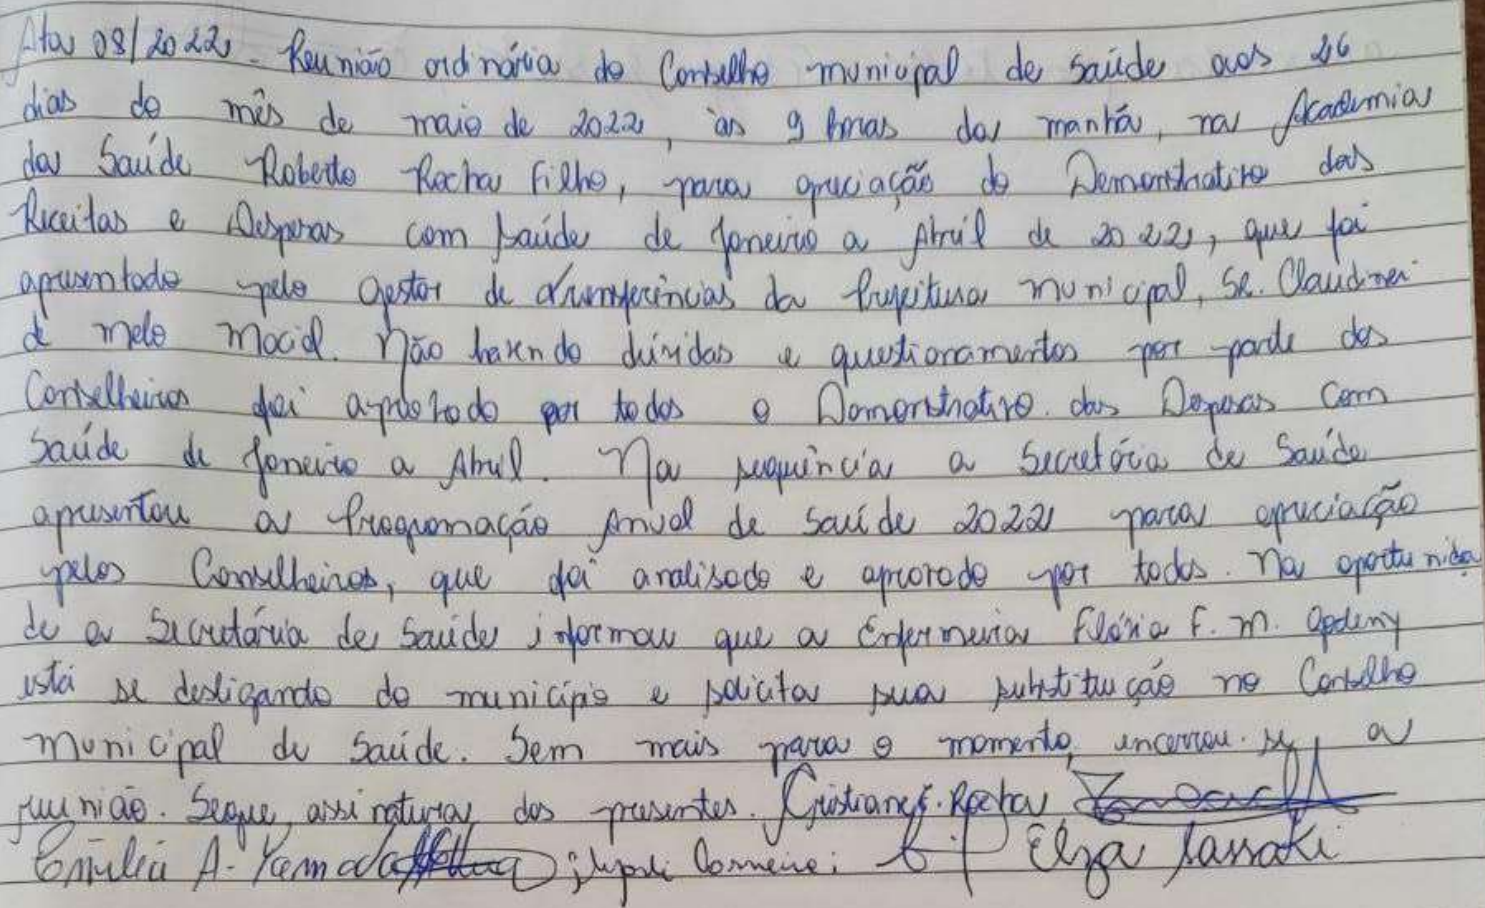 Ata 08/2022. Reunião ordinária do Conselho municipal de saúde aos 26
dias do mês de maio de 2022, às 9 horas da manhã, na Academia
da Saúde Roberto Rocha Filho, para apreciação do Demonstrativo das
Receitas e Despesas com saúde de Janeiro a Abril de 2022, que foi
apresentado pelo Gestor de transferências da Prefeitura municipal, Sr. Claudinei
de Melo Maciel. Não havendo dúvidas e questionamentos por parte dos
Conselheiros foi aprovado por todos o Demonstrativo das Despesas com
Saúde de Janeiro a Abril. Na sequência a Secretária de Saúde
apresentou a Programação Anual de Saúde 2022 para apreciação
pelos Conselheiros, que foi analisado e aprovado por todos. Na oportunida
de a Secretária de Saúde informou que a Enfermeira F. M.
está se desligando do município e solicita sua substituição no Conselho
Municipal de Saúde. Sem mais para o momento, encerrou-se a
reunião. Segue assinaturas dos presentes. Rocha
Emília A. Yamada Elza Sassaki